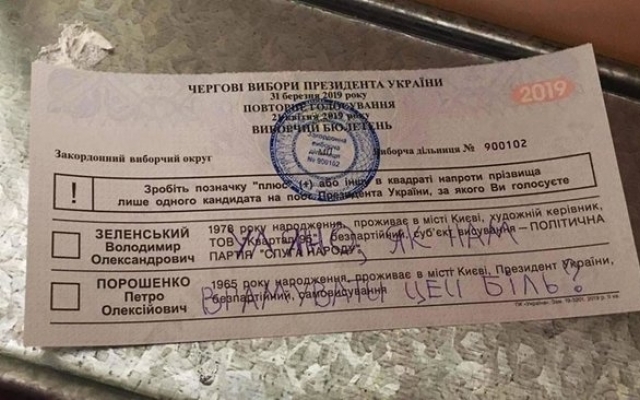 ЧЕРГОВІ ВИБОРИ ПРЕЗИДЕНТА УКРАЇНИ
31 березня 2019 року
2019
ПОВТОРНЕ ГОЛОСУВАННЯ
21 квітня 2019 року
ВИБОРЧИЙ БЮЛЕТЕНЬ
Закордонний виборчий округ
Виборча дільниця № 900102
Закордонна
виборча
дільниця
№ 900102
! Зробіть позначку "плюс" (+) або іншу в квадраті напроти прізвища
лише одного кандидата на пост Президента України, за якого Ви голосуєте
ЗЕЛЕНСЬКИЙ
Володимир
Олександрович
1978 року народження, проживає в місті Києві, художній керівник,
ТОВ "Квартал 95", безпартійний, суб'єкт висування – ПОЛІТИЧНА
ПАРТІЯ "СЛУГА НАРОДУ"
ЯК НАМ
ПОРОШЕНКО
Петро
Олексійович
1965 року народження, проживає в місті Києві, Президент України,
безпартійний, самовисування
ВГАМУВАТИ ЦЕЙ БІЛЬ?